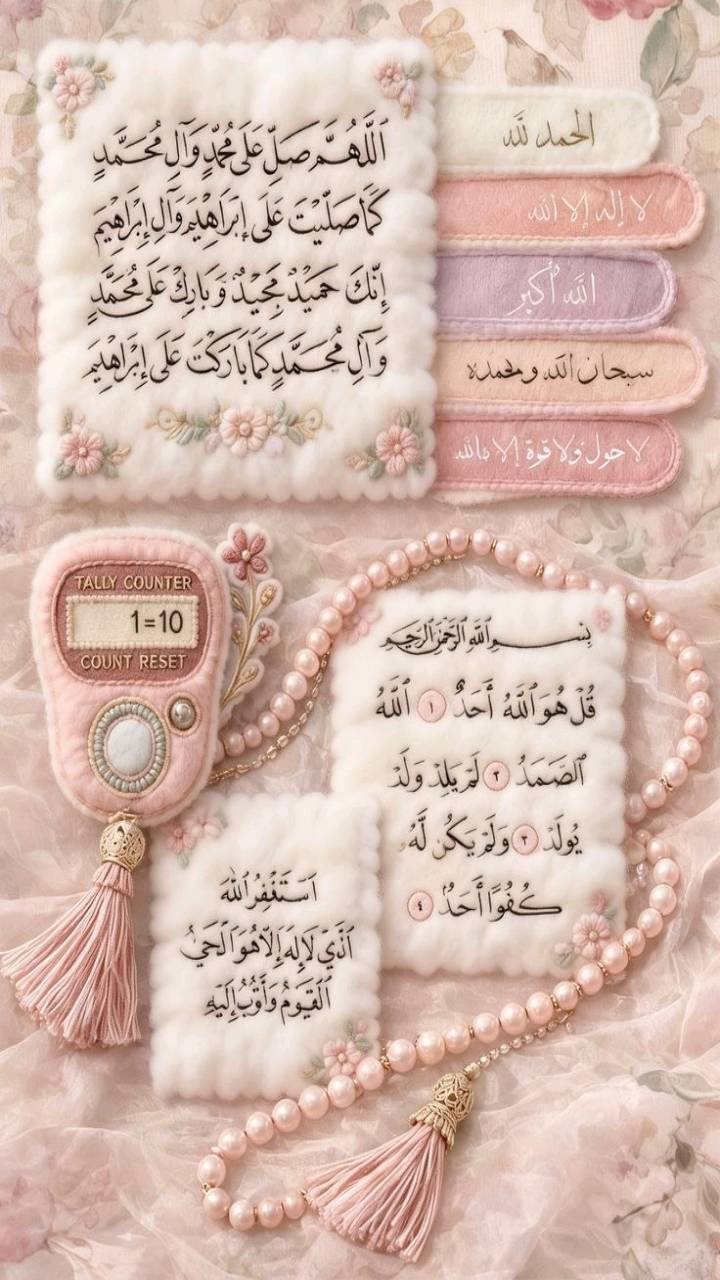 اَللّٰهُمَّ صَلِّ عَلَى مُحَمَّدٍ وَآلِ مُحَمَّدٍ
كَمَا صَلَّيْتَ عَلَى إِبْرَاهِيْمَ وَآلِ إِبْرَاهِيْمَ
إِنَّكَ حَمِيْدٌ مَجِيْدٌ وَبَارِكْ عَلَى مُحَمَّدٍ
وَآلِ مُحَمَّدٍ كَمَا بَارَكْتَ عَلَى إِبْرَاهِيْمَ
الحمد لله
لا إله إلا الله
الله أكبر
سبحان الله وبحمده
لا حول ولا قوة إلا بالله
TALLY COUNTER
1=10
COUNT RESET
بِسْمِ اللَّهِ الرَّحْمَٰنِ الرَّحِيمِ
قُلْ هُوَ ٱللَّهُ أَحَدٌ ١ ٱللَّهُ
ٱلصَّمَدُ ٢ لَمْ يَلِدْ وَلَمْ
يُولَدْ ٣ وَلَمْ يَكُن لَّهُ
كُفُوًا أَحَدٌ ٤
اَسْتَغْفِرُ اللهَ
الَّذِيْ لَا إِلَهَ إِلَّا هُوَ الْحَيُّ
الْقَيُّوْمُ وَأَتُوْبُ إِلَيْهِ